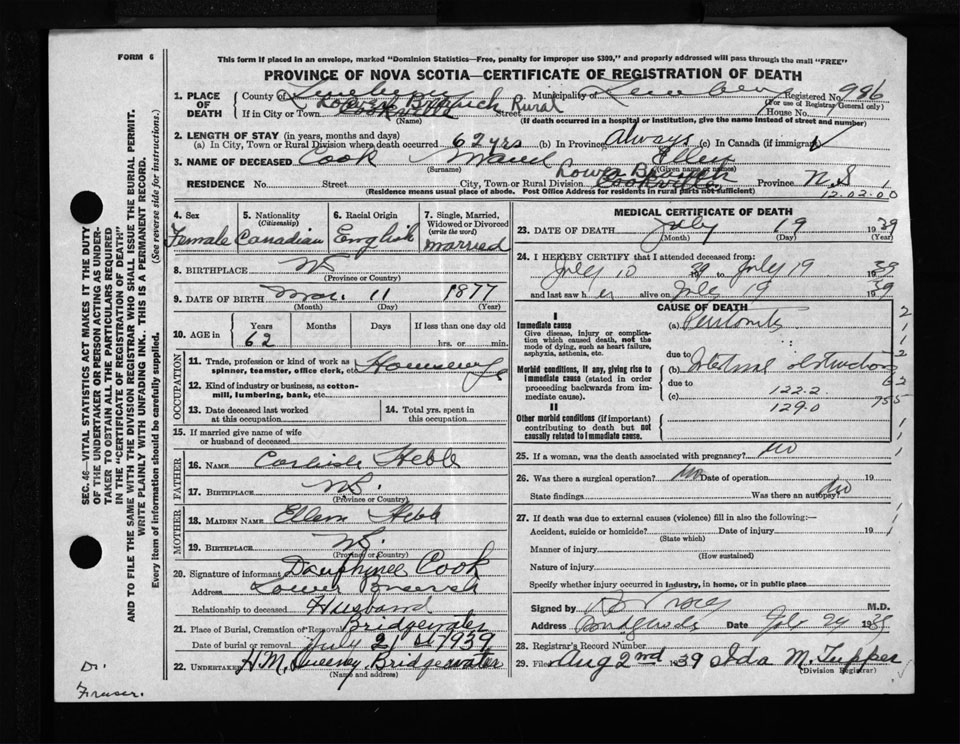 FORM 6
This form if placed in an envelope, marked "Dominion Statistics—Free, penalty for improper use $300," and properly addressed will pass through the mail "FREE"
PROVINCE OF NOVA SCOTIA—CERTIFICATE OF REGISTRATION OF DEATH
SEC. 46—VITAL STATISTICS ACT MAKES IT THE DUTY
OF THE UNDERTAKER OR PERSON ACTING AS UNDER-
TAKER TO OBTAIN ALL THE PARTICULARS REQUIRED
IN THE "CERTIFICATE OF REGISTRATION OF DEATH"
AND TO FILE THE SAME WITH THE DIVISION REGISTRAR WHO SHALL ISSUE THE BURIAL PERMIT.
WRITE PLAINLY WITH UNFADING INK. THIS IS A PERMANENT RECORD.
Every item of information should be carefully supplied. (See reverse side for instructions.)
1. PLACE OF DEATH
County of Lunenburg Municipality of Lunenburg Registered No. 986
(For use of Registrar General only)
Lower Branch
If in City or Town Cookville Rural Street House No.
(Name) (If death occurred in a hospital or institution, give the name instead of street and number)
2. LENGTH OF STAY (in years, months and days)
(a) In City, Town or Rural Division where death occurred 62 yrs (b) In Province always (c) In Canada (if immigrant)
3. NAME OF DECEASED Cook Maud Ellen
(Surname) (Given name or names)
Lower Branch
RESIDENCE No. Street City, Town or Rural Division Cookville Province N.S. 1
(Residence means usual place of abode. Post Office Address for residents in rural parts not sufficient) 12.02.00
4. Sex Female
5. Nationality (Citizenship) Canadian
6. Racial Origin English
7. Single, Married, Widowed or Divorced (write the word) married
8. BIRTHPLACE N.S.
(Province or Country)
9. DATE OF BIRTH Mar. 11 1877
(Month) (Day) (Year)
10. AGE in Years 62 Months Days If less than one day old
hrs. or min.
OCCUPATION
11. Trade, profession or kind of work as spinner, teamster, office clerk, etc. Housewife
12. Kind of industry or business, as cotton-mill, lumbering, bank, etc.
13. Date deceased last worked at this occupation
14. Total yrs. spent in this occupation
15. If married give name of wife or husband of deceased
FATHER
16. NAME Hebb
17. BIRTHPLACE N.S.
(Province or Country)
MOTHER
18. MAIDEN NAME Ellen Hebb
19. BIRTHPLACE N.S.
(Province or Country)
20. Signature of informant Dauphinee Cook
Address Lower Branch
Relationship to deceased Husband
21. Place of Burial, Cremation or Removal Bridgewater
Date of burial or removal July 21st 1939
22. UNDERTAKER H.M. Sweeney Bridgewater
(Name and address)
MEDICAL CERTIFICATE OF DEATH
23. DATE OF DEATH July 19 1939
(Month) (Day) (Year)
24. I HEREBY CERTIFY that I attended deceased from:
July 10 39 to July 19 1939
and last saw her alive on July 19 1939
CAUSE OF DEATH
I
Immediate cause
Give disease, injury or complication which caused death, not the mode of dying, such as heart failure, asphyxia, asthenia, etc.
(a) Peritonitis
due to
Morbid conditions, if any, giving rise to immediate cause (stated in order proceeding backwards from immediate cause).
(b) Intestinal obstruction
due to 122.2
(c) 129.0 755
II
Other morbid conditions (if important) contributing to death but not causally related to immediate cause.
25. If a woman, was the death associated with pregnancy? no
26. Was there a surgical operation? no Date of operation 19
State findings Was there an autopsy? no
27. If death was due to external causes (violence) fill in also the following:—
Accident, suicide or homicide? Date of injury 19
(State which)
Manner of injury
(How sustained)
Nature of injury
Specify whether injury occurred in industry, in home, or in public place
Signed by M.D.
Address Bridgewater Date July 24 1939
28. Registrar's Record Number
29. Filed Aug 2nd 1939 Ida M. Tupper
(Division Registrar)
Dr.
Fraser.